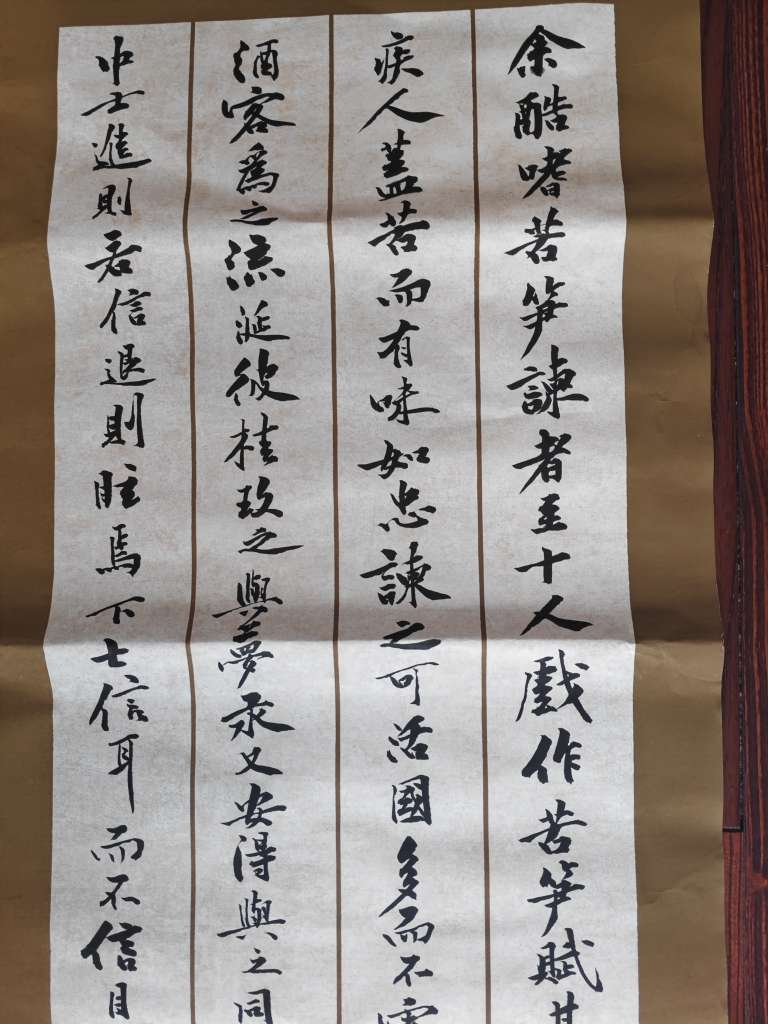 余酷嗜苦笋諫者至十人戲作苦笋賦其
疾人蓋苦而有味如忠諫之可活國多而不
酒客爲之流涎彼桂玫之與夢汞又安得與之同
中士進則若信退則眩焉下士信耳而不信目